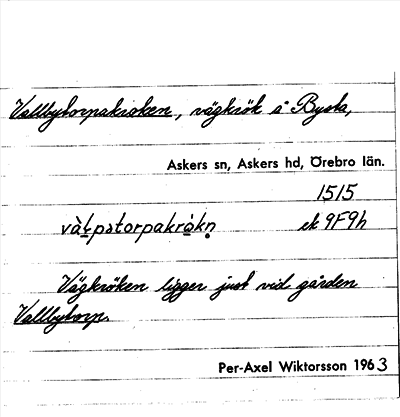 Vallbytorpakroken, vägkrök å Bysta,
Askers sn, Askers hd, Örebro län.
1515
vàḷpstorpakrȯkṇ ek 9F9h
Vägkröken ligger just vid gården
Vallbytorp.
Per-Axel Wiktorsson 1963